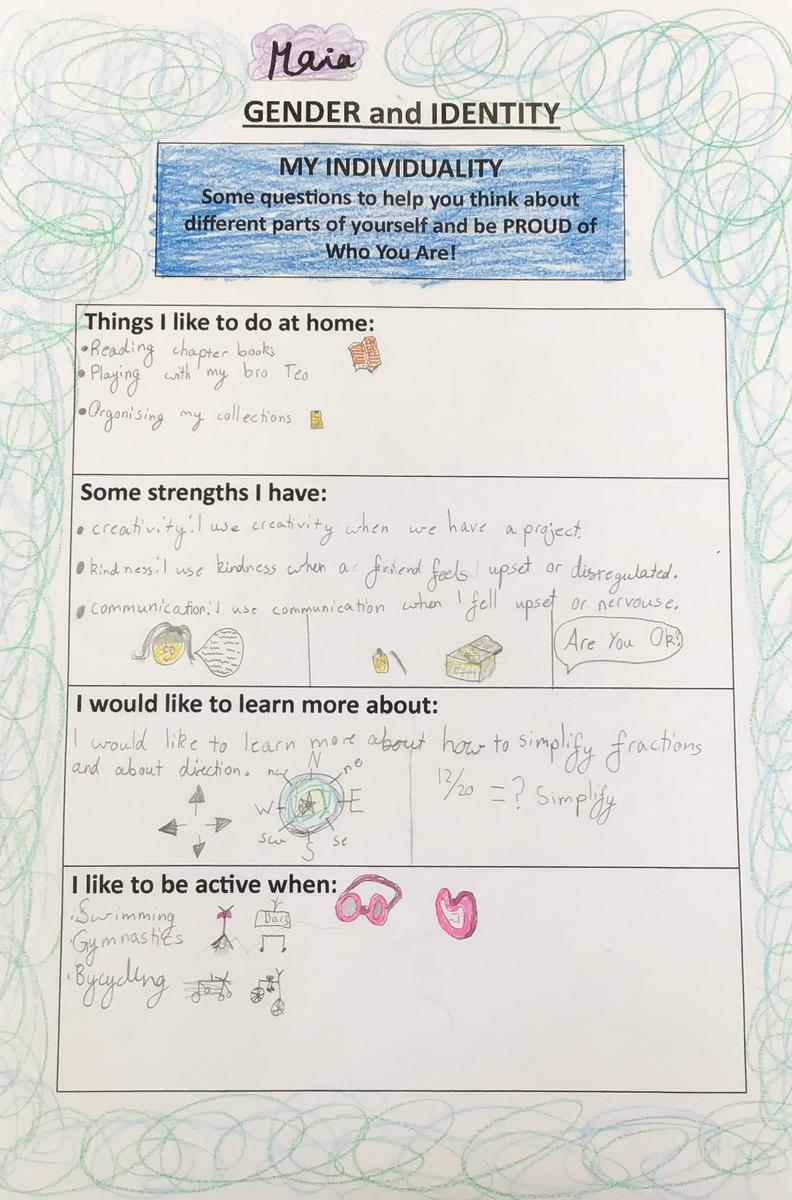 Maia
GENDER and IDENTITY
MY INDIVIDUALITY
Some questions to help you think about
different parts of yourself and be PROUD of
Who You Are!
Things I like to do at home:
•Reading chapter books
•Playing with my bro Teo
•Orgonising my collections
Some strengths I have:
• creativity: I use creativity when we have a project.
• kindness: I use kindness when a friend feels upset or disregulated.
• communication: I use communication when I fell upset or nervouse.
Are You Ok?
I would like to learn more about:
I would like to learn more about how to simplify fractions
and about direction.
nw N ne
W E
sw S se
12/20 = ? Simplify
I like to be active when:
•Swimming
•Gymnastics
Bars
•Bycycling